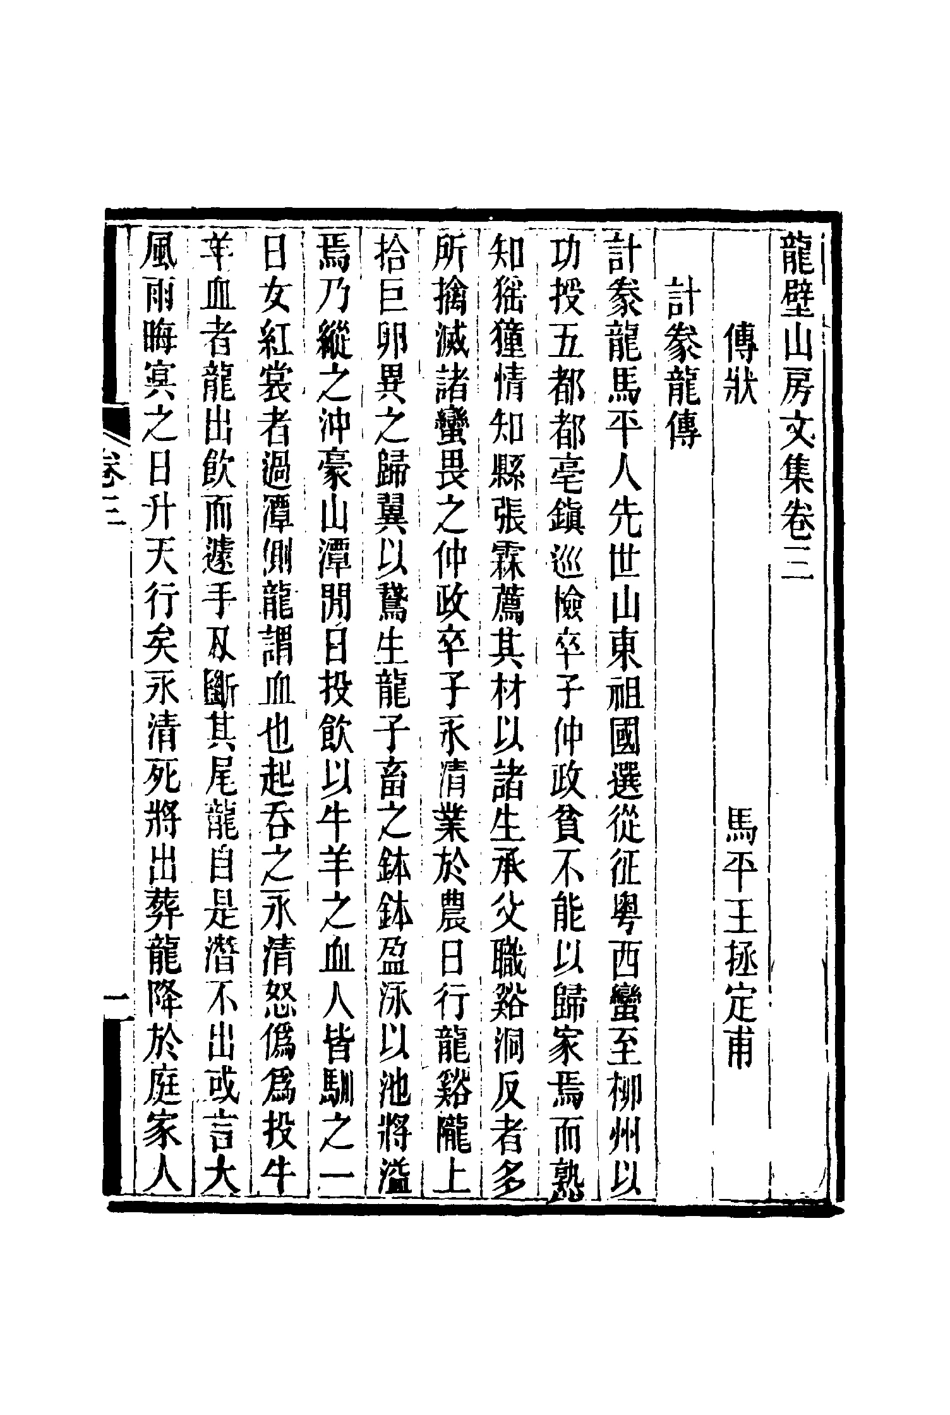 龍壁山房文集卷三
傳狀
馬平王拯定甫
計豢龍傳
計豢龍馬平人先世山東祖國選從征粵西蠻至柳州以
功投五都都亳鎮巡檢卒子仲政貧不能以歸家焉而熟
知猺獞情知縣張霖薦其材以諸生承父職谿洞反者多
所擒滅諸蠻畏之仲政卒子永清業於農日行龍谿隴上
拾巨卵異之歸翼以鵞生龍子畜之鉢鉢盈泳以池將溢
焉乃縱之沖豪山潭閒日投飲以牛羊之血人皆馴之一
日女紅裳者過潭側龍謂血也起吞之永清怒僞爲投牛
羊血者龍出飲而遽手刃斷其尾龍自是潛不出或言大
風雨晦冥之日升天行矣永清死將出葬龍降於庭家人
卷三
一